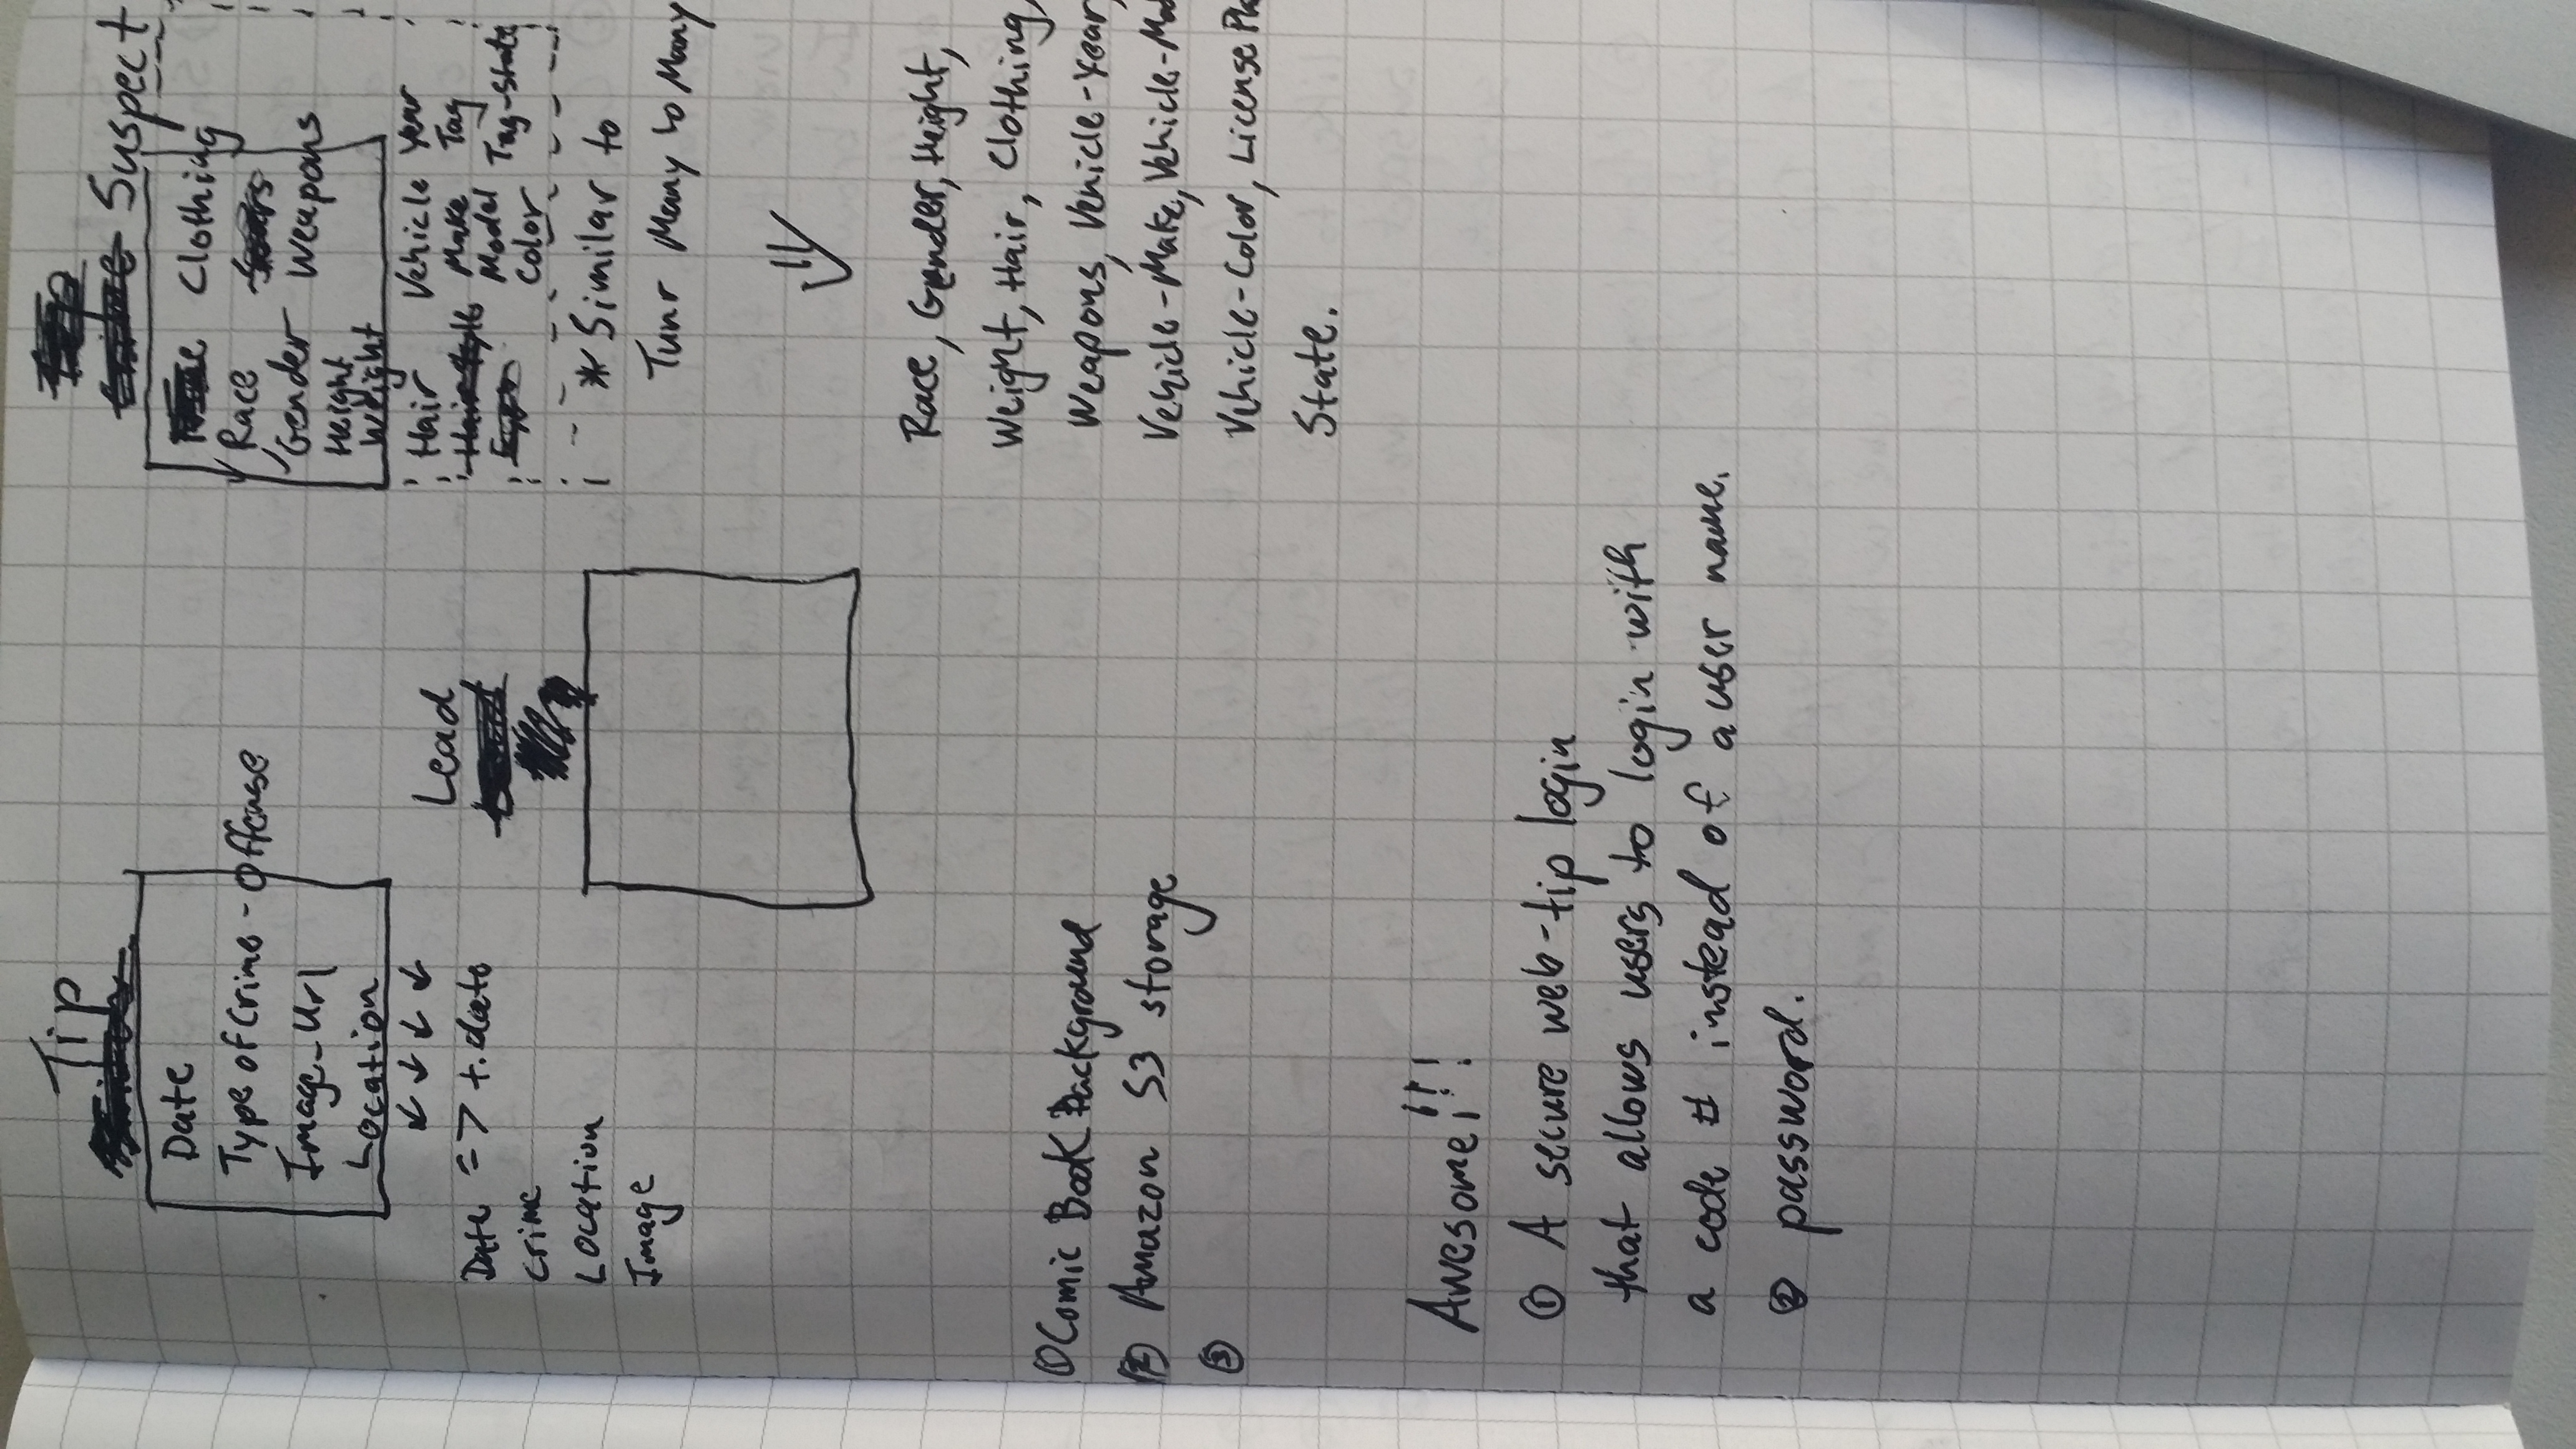 Tip
Date
Type of Crime - Offense
Image_Url
Location
Date => t.date
Crime
Location
Image
Lead
Suspect
Clothing
Race
Gender Weapons
Height
Weight
Hair Vehicle Year
Hair style Make Tag
Eyes Model Tag-State
Color
* Similar to
Tunr Many to Many
Race, Gender, Height,
Weight, Hair, Clothing,
Weapons, Vehicle-Year,
Vehicle-Make, Vehicle-Mod
Vehicle-Color, License Pla
State.
① Comic Book Background
② Amazon S3 storage
③
Awesome!!!
① A secure web-tip login
that allows users to login with
a code # instead of a user name.
② password.